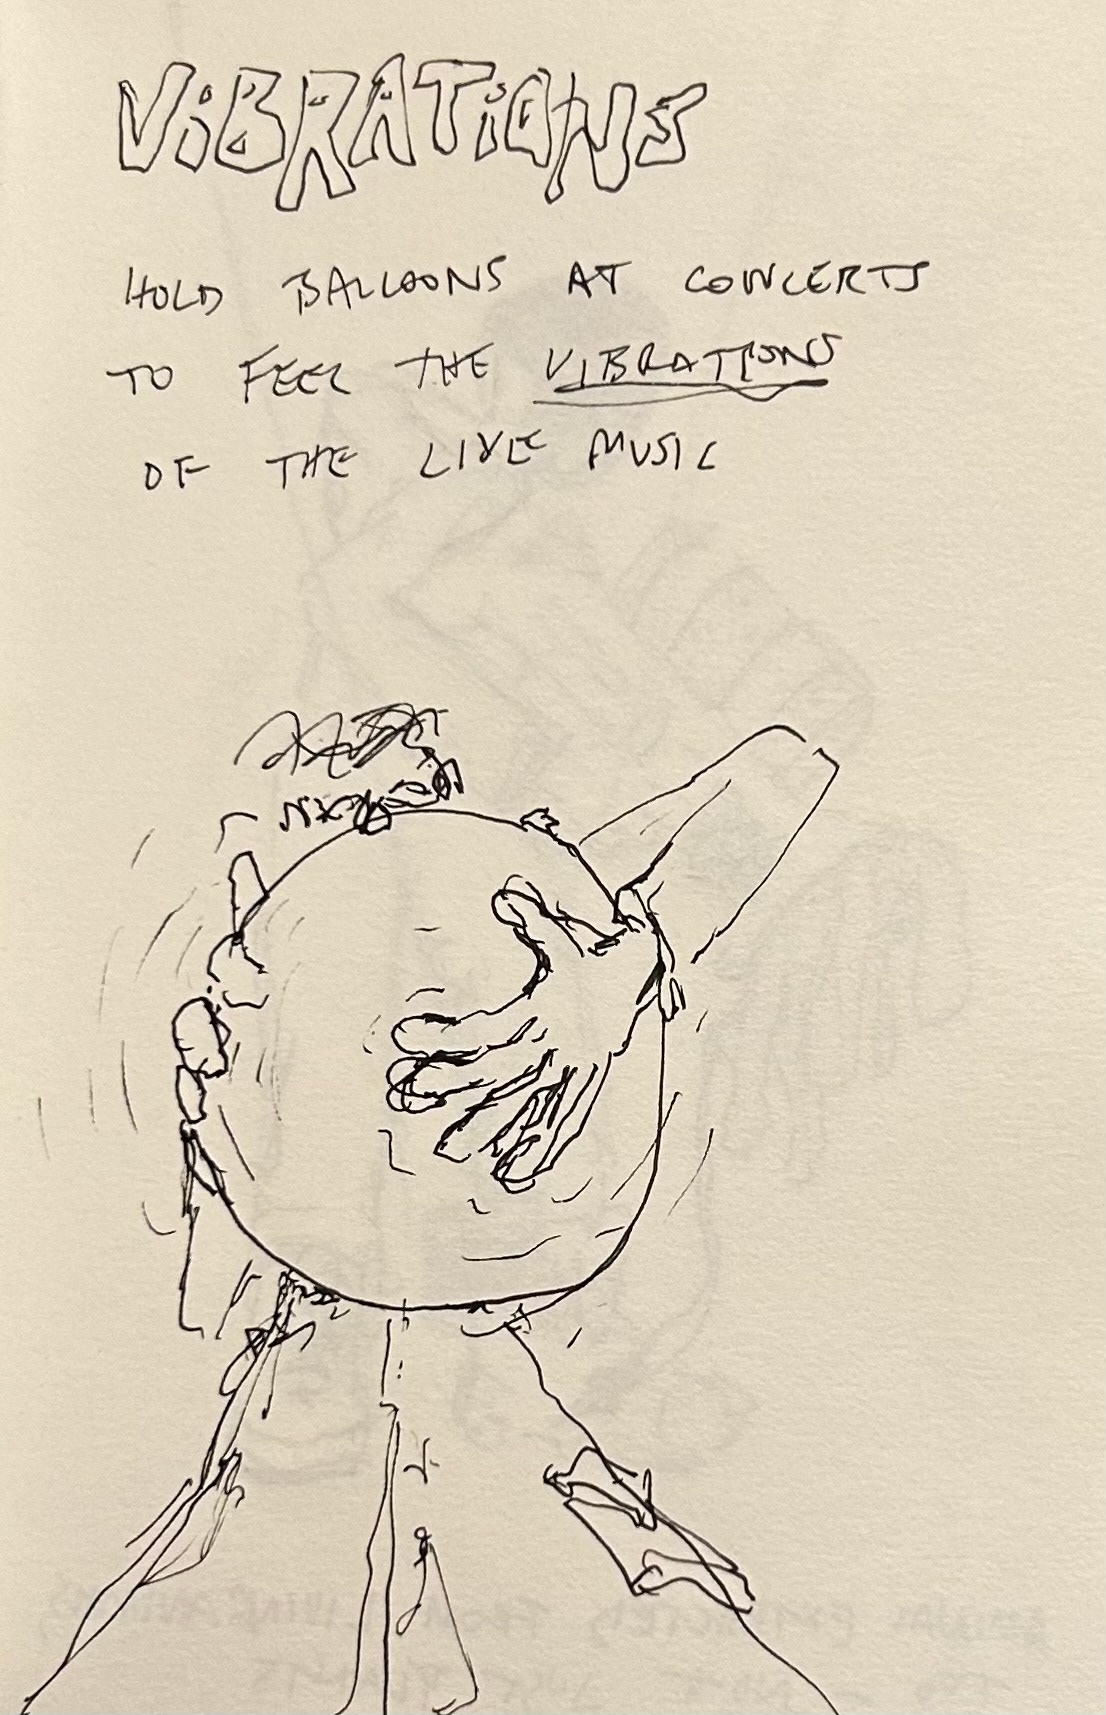 ViBRATiONS
HOLD BALLOONS AT CONCERTS
TO FEEL THE VIBRATIONS
OF THE LIVE MUSIC